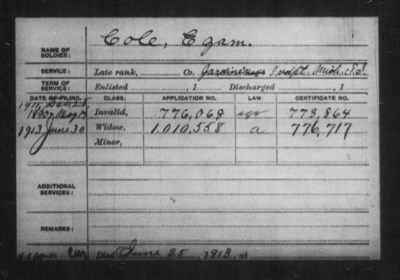 Cole, Egam.
NAME OF SOLDIER:
SERVICE: Late rank, Co. Indpt. Mich. S.S.
TERM OF SERVICE: Enlisted , 1 Discharged , 1
DATE OF FILING. CLASS. APPLICATION NO. LAW. CERTIFICATE NO.
Invalid, 776,068 773,864
1913 June 30 Widow, 1.010.558 a 776,717
Minor,
ADDITIONAL SERVICES:
REMARKS:
Died June 25, 1913, at